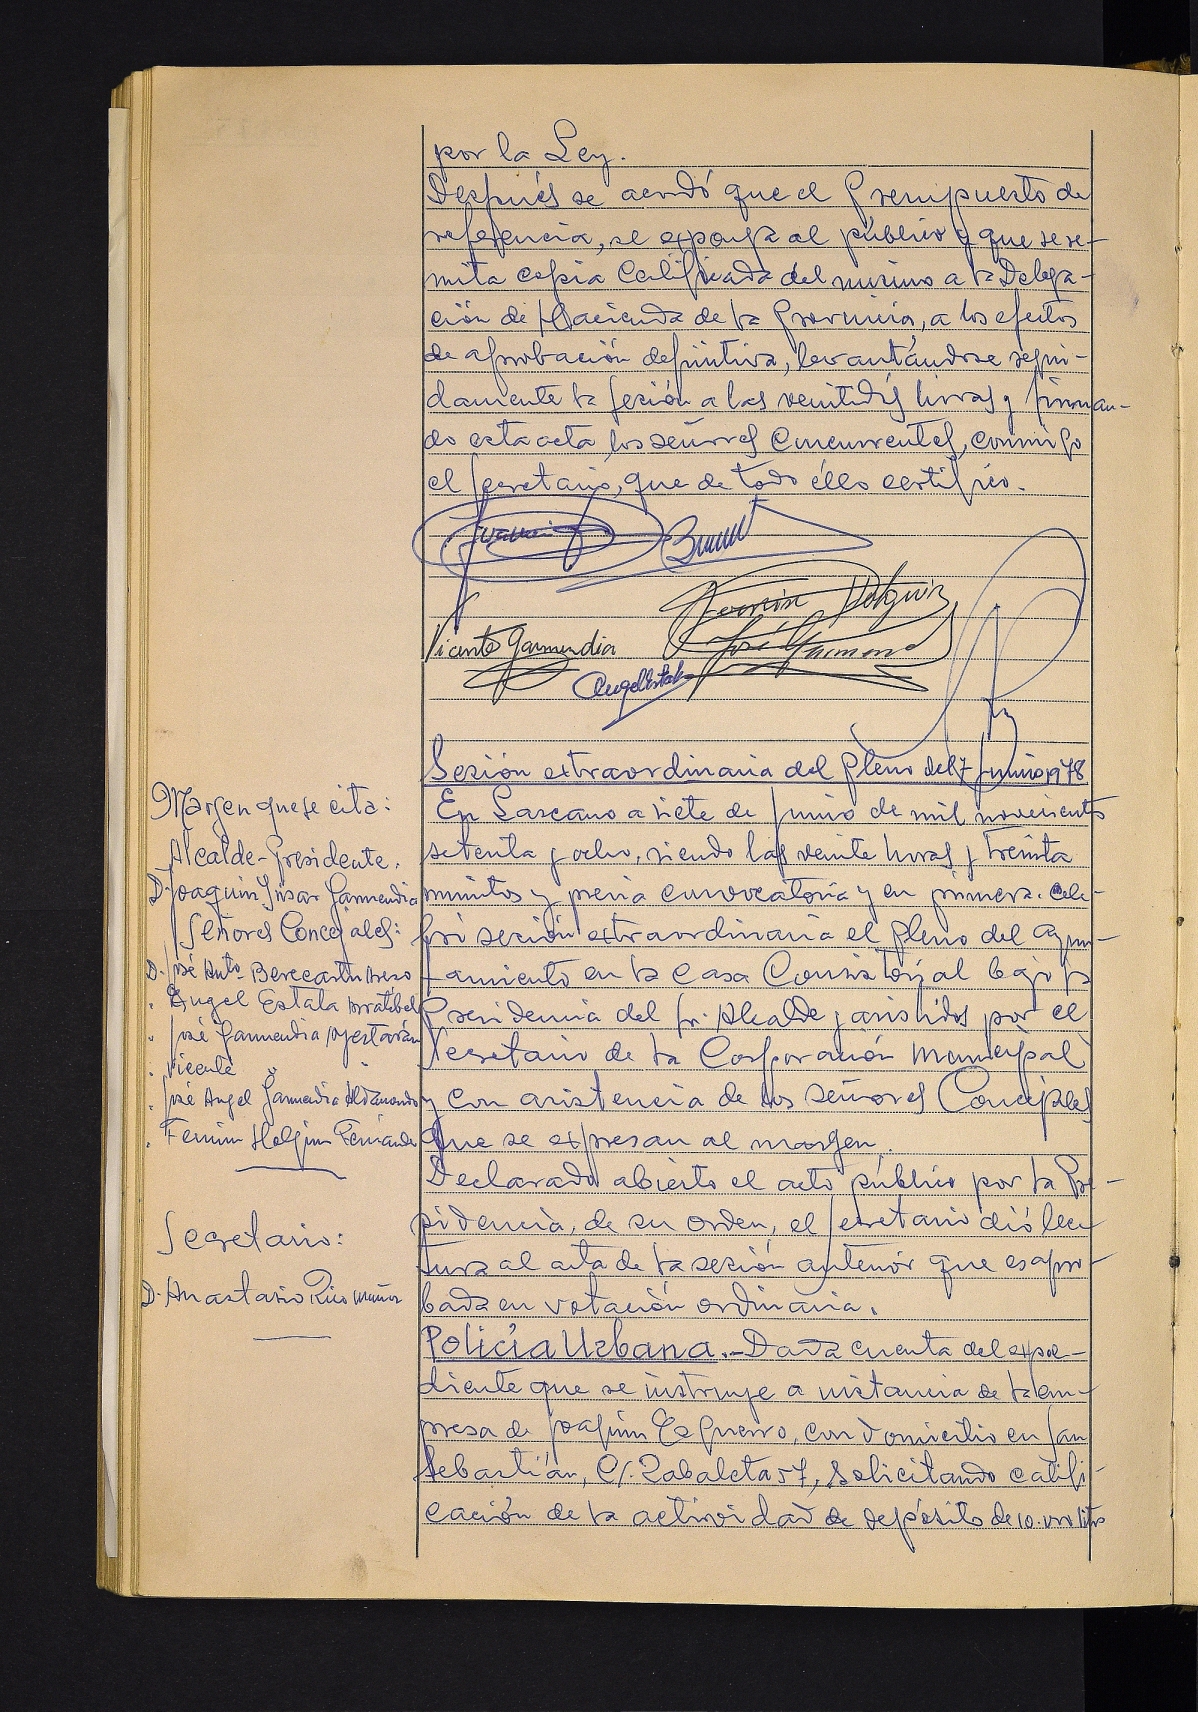 por la Ley.
Después se acordó que el Presupuesto de
referencia, se exponga al público y que se re-
mita copia Calificada del mismo a la Delega-
ción de Hacienda de la Provincia, a los efectos
de aprobación definitiva, levantándose segui-
damente la sesión a las veintidós horas y firman-
do esta acta los señores concurrentes, conmigo
el Secretario, que de todo éllo certifico.
Vicente Garmendia
Fermín Holguin
José Garmendia
Angel Estala
Sesión extraordinaria del Pleno del 7 Junio 1978
Margen que se cita:
Alcalde-Presidente.
D. Joaquin Garmendia
Señores Concejales:
D. José Anto. Berecartu
" Angel Estala
" José Garmendia
" Vicente " "
" José Angel Garmendia Aldanondo
" Fermin Holguin Fernandez
Secretario:
D. Anastasio Rico Muñoz
En Lazcano a siete de Junio de mil novecientos
setenta y ocho, siendo las veinte horas y treinta
minutos y previa convocatoria y en primera. cele-
bró sesión extraordinaria el Pleno del Ayun-
tamiento en la Casa Consistorial bajo la
Presidencia del Sr. Alcalde y asistidos por el
Secretario de la Corporación Municipal
y con asistencia de los señores Concejales
que se expresan al margen.
Declarado abierto el acto público por la Pre-
sidencia, de su orden, el Secretario dió lec-
tura al acta de la sesión anterior que es apro-
bada en votación ordinaria.
Policía Urbana.- Dada cuenta del expe-
diente que se instruye a instancia de la em-
presa de Joaquin Ezquerro, con domicilio en San
Sebastián, C/. Zabaleta 57, solicitando califi-
cación de la actividad de depósito de 10.000 litros